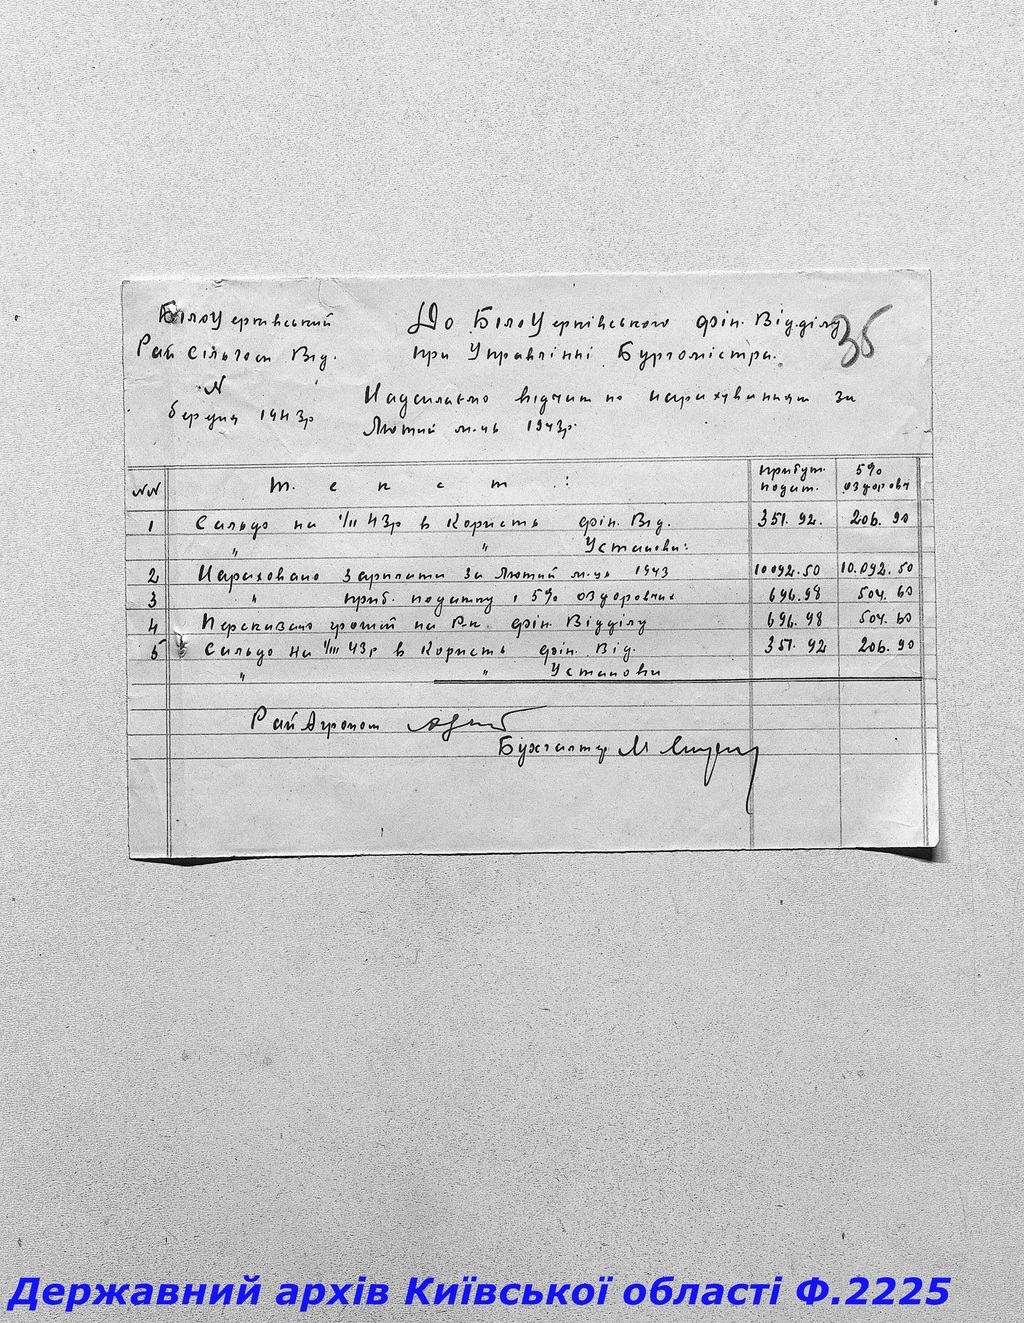 БілоЦерківський
Рай Сільгосп Від.
№
березня 1943р
До БілоЦерківського фін. Відділу
при Управлінні Бургомістра.
36
Надсилаємо відчит по нарахуванням за
Лютий м-ць 1943р.
№№ Т е к с т : прибут. подат. 5% оздоровч
1 Сальдо на 1/II 43р в Користь фін. Від. 351. 92. 206. 90
" " Установи:
2 Нараховано Зарплати за Лютий м-ць 1943 10092.50 10.092.50
3 " приб. податку і 5% оздоровчих 696.98 504. 60
4 Перек. грошей на Р-к фін. Відділу 696. 98 504. 60
5 Сальдо на 1/III 43р в Користь фін. Від. 351. 92 206. 90
" " Установи
Рай Агроном
Бухгалтер М
Державний архів Київської області Ф.2225